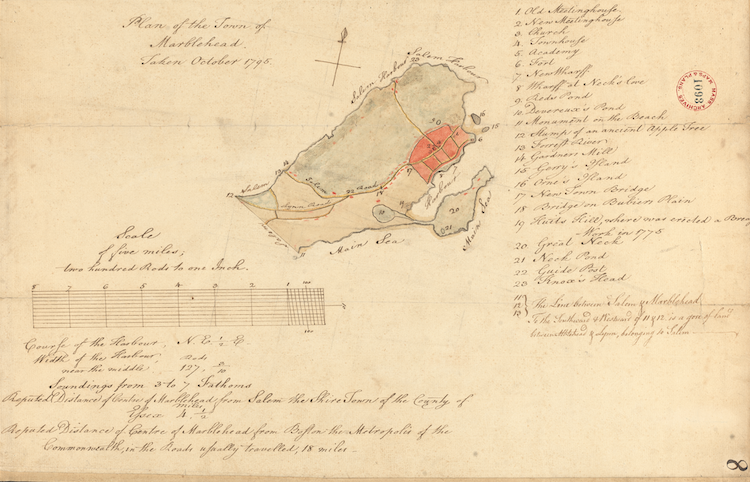 Plan of the Town of
Marblehead.
Taken October 1795.
1 Old Meetinghouse
2 New Meetinghouse
3 Church
4 Townhouse
5 Academy
6 Fort
7 New Wharff
8 Wharff at Nock's Cove
9 Reds Pond
10 Devereux's Pond
11 Monument on the Beach
12 Stump of an ancient Apple Tree
13 Forrest River
14 Gardners Mill
15 Gerry's Island
16 Orne's Island
17 New Town Bridge
18 Bridge on Bubiers Plain
19 where was erected a Breast
Work in 1775
20 Great Neck
21 Neck Pond
22 Guide Post
23 Knox's Head
11
12
13
The Line between Salem & Marblehead
To the Southward & Westward of 11 & 12 is a gore of land
between Marblehead & Lynn, belonging to Salem
MASS. ARCHIVES
MAPS & PLANS
1093
Salem Harbour
Salem Harbour
Salem
Salem
Road
Lynn Road
Harbour
Main Sea
Main Sea
Scale
of five miles;
two hundred Rods to one Inch.
8 7 6 5 4 3 2 1
100
100
Course of the Harbour, N. E. 1/2 E.
Width of the Harbour, Rods
near the middle, 127,
Soundings from 3 to 7 Fathoms
Reputed Distance of Centre of Marblehead from Salem the Shire Town of the County of
Essex miles 4 1/2
Reputed Distance of Centre of Marblehead from Boston the Metropolis of the
Commonwealth, in the Roads usually travelled, 18 miles
8